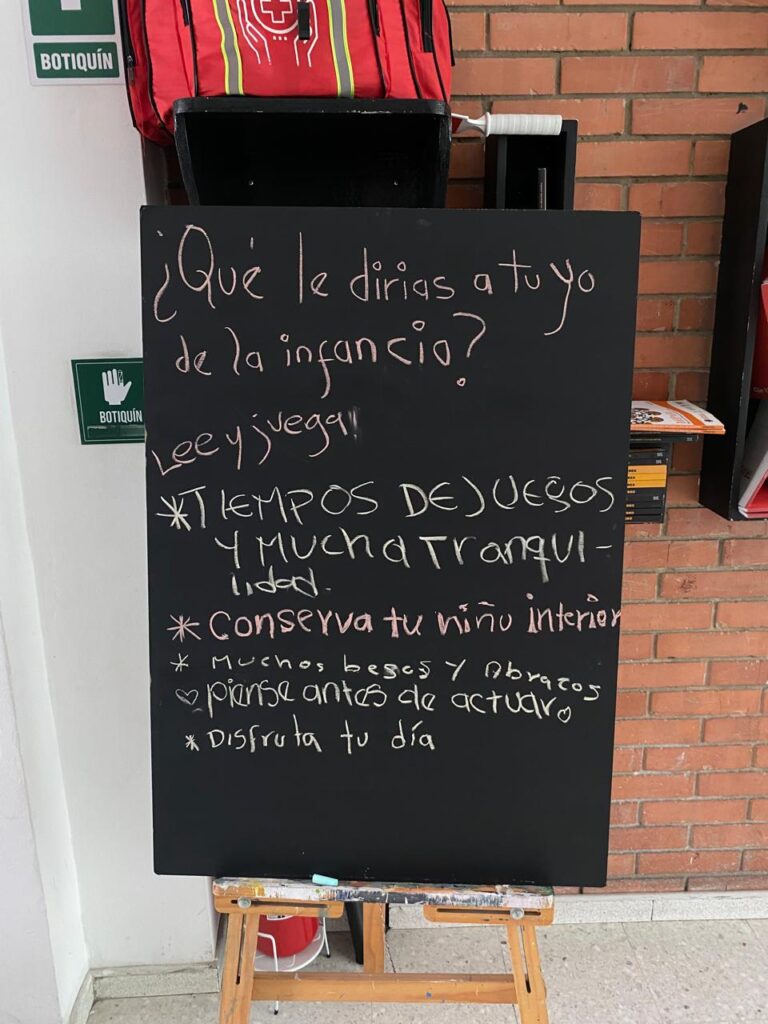 BOTIQUÍN
BOTIQUÍN
¿Qué le dirias a tu yo
de la infancia?
Lee y juega
*TIEMPOS DE JUEGOS
Y Mucha Tranqui-
lidad.
* Conserva tu niño interior
* Muchos besos y Abrazos
♡ piense antes de actuar ♡
* Disfruta tu día